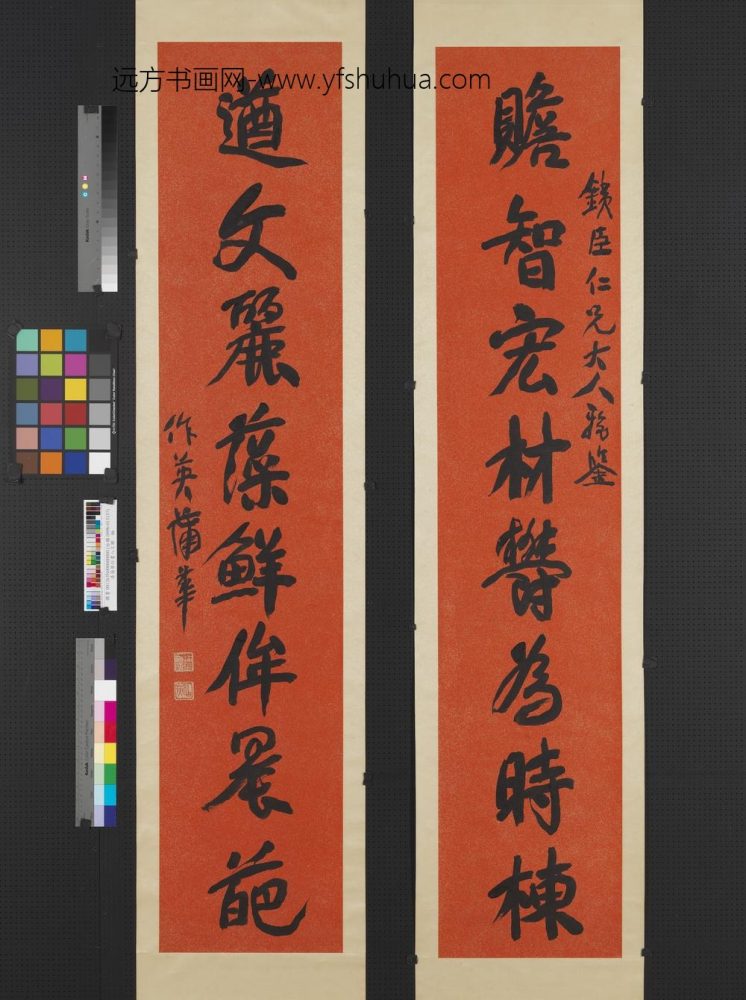 远方书画网-www.yfshuhua.com
銕臣仁兄大人雅鑒
贍智宏材欝為時棟
遒文麗藻鮮侔晨葩
作英蒲華